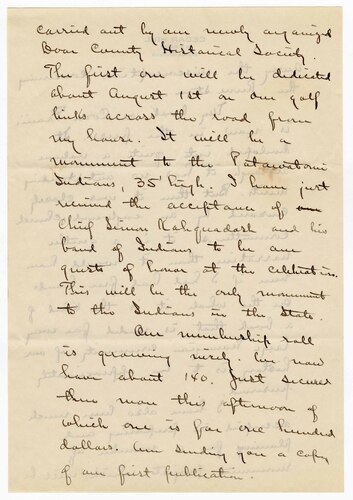 carried out by our newly organized
Door County Historical Society.
The first one will be dedicated
about August 1st on our golf
links across the road from
my house. It will be a
monument to the Patawatomi
Indians, 35' high. I have just
received the acceptance of
Chief Simon Kahquadosh and his
band of Indians to be our
guests of honor at the celebration.
This will be the only monument
to the Indians in the State.
Our membership roll
is growing nicely. We now
have about 140. Just secured
three more this afternoon of
which one is for one hundred
dollars. Am sending you a copy
of our first publication.